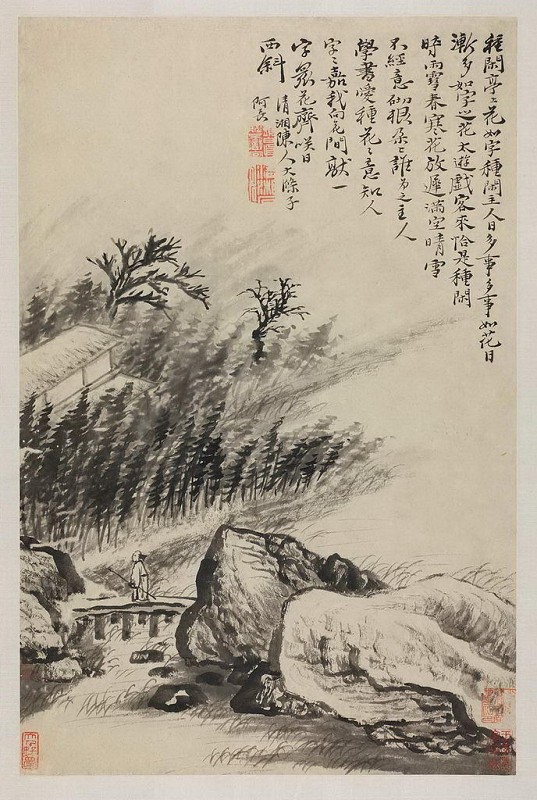 種閑亭亭花如字種閑主人日多事多事如花日
漸多如字之花太遊戲客來恰是種閑
時雨雪春寒花放遲滿空晴雪
不經意砌根朵朵誰為之主人
學書愛種花花意知人
字字嘉我向花間獻一
字眾花齊笑日
西斜
清湘陳人大滌子
阿長